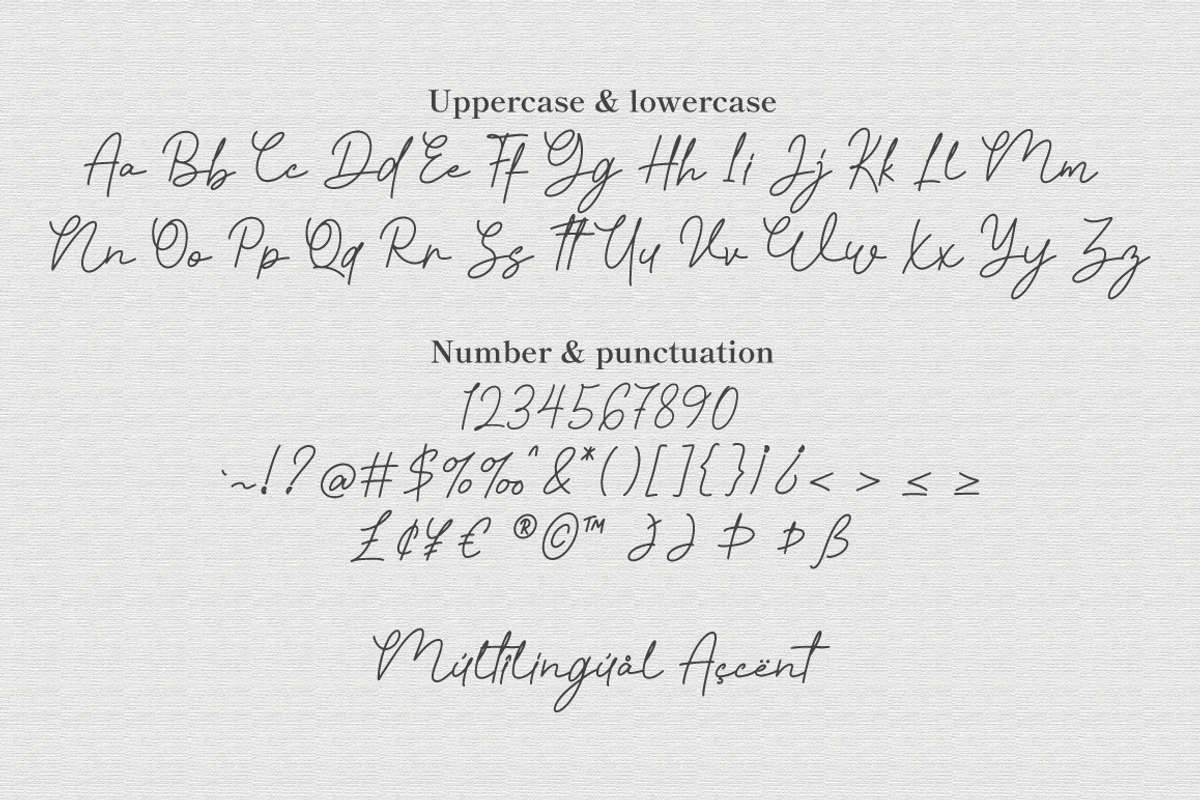 Uppercase & lowercase
Aa Bb Cc Dd Ee Ff Gg Hh Ii Jj Kk Ll Mm
Nn Oo Pp Qq Rr Ss Tt Uu Vv Ww Xx Yy Zz
Number & punctuation
1234567890
`~!?@#$%‰^&*()[]{}¡¿< > ≤ ≥
£¢¥€ ®©™ Þ þ ß
Múltîlingúål Açcënt